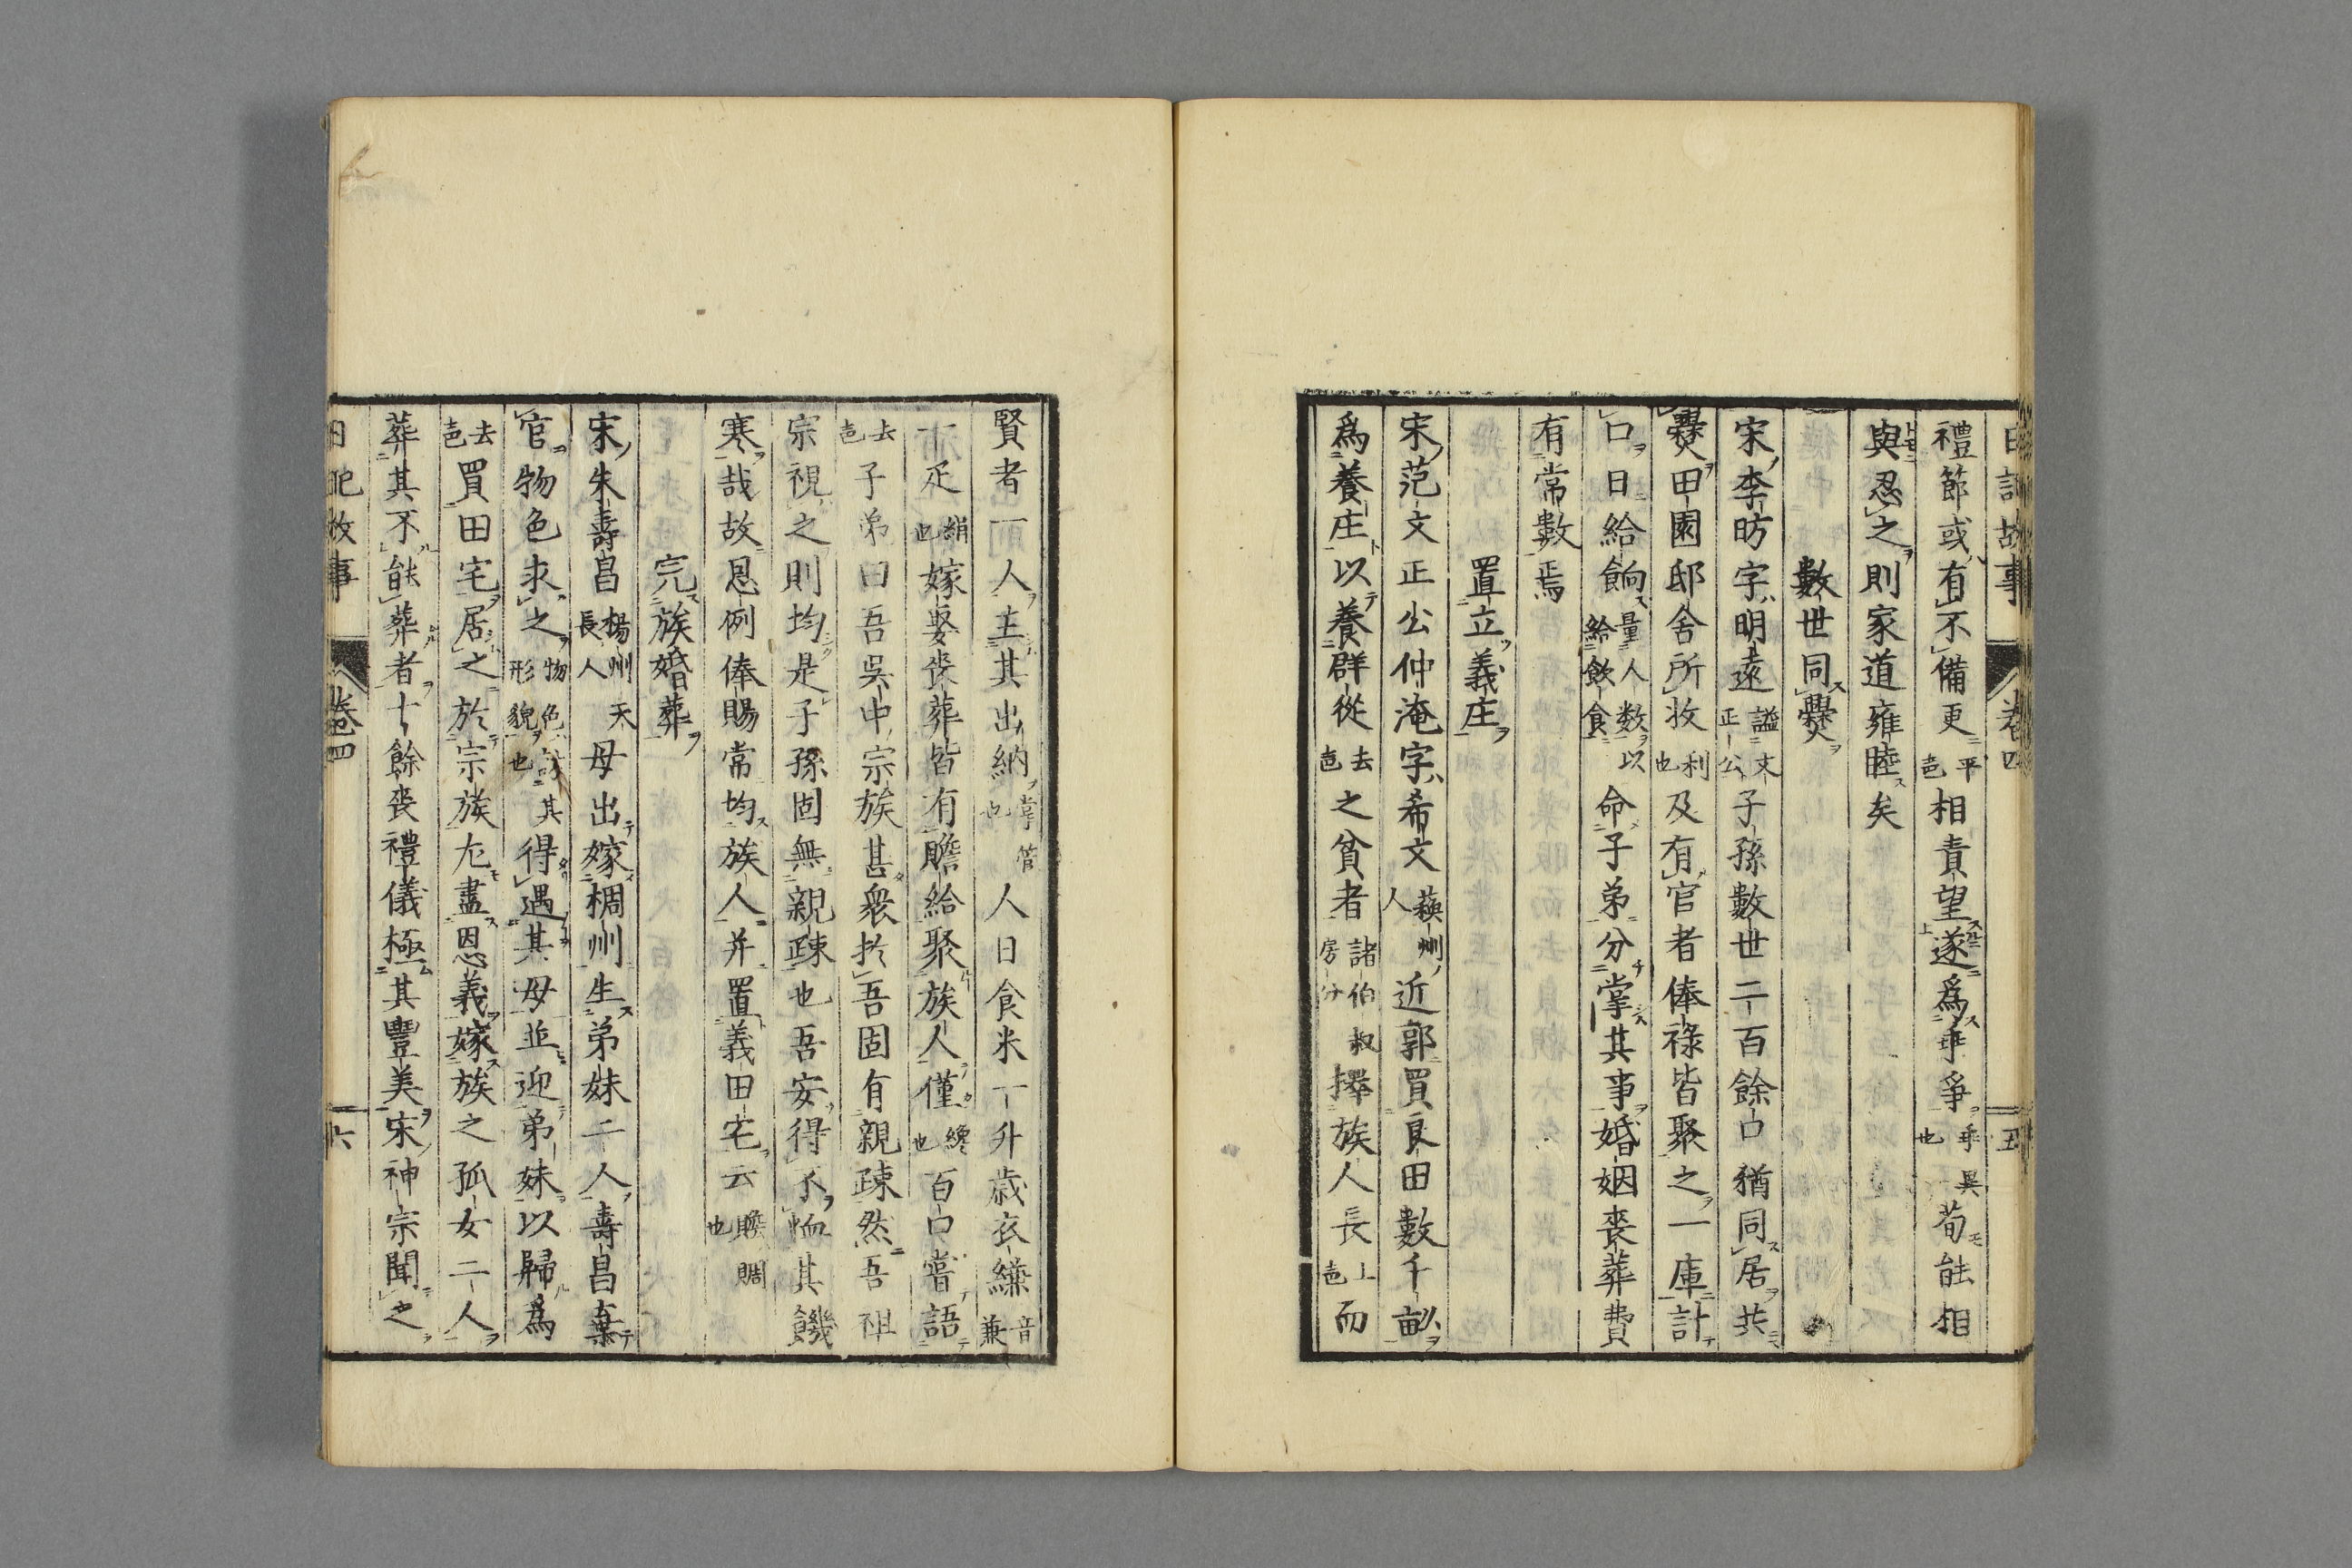 日記故事 卷四 五
禮節或有不備更平声相責望遂爲乖爭乖異也苟能相
與忍之則家道雍睦矣
數世同爨
宋李昉字明遠謚文正公子孫數世二百餘口猶同居共
爨田園邸舍所收利也及有官者俸祿皆聚之一庫計
口日給餉量人数以給飲食命子弟分掌其事婚姻喪葬費
有常數焉
置立義庄
宋范文正公仲淹字希文蘓州人近郭買良田數千畝以
爲養庄以養群從去声之貧者諸伯叔房分擇族人長上声而
賢者一人主其出納掌管也人日食米一升歲衣縑音兼
一疋絹也嫁娶喪葬皆有贍給聚族人僅纔也百口嘗語
去声子弟曰吾吳中宗族甚衆於吾固有親疎然吾祖
宗視之則均是子孫固無親疎也吾安得不恤其饑
寒哉故恩例俸賜常均族人并置義田宅云贍賙也
完族婚葬
宋朱壽昌楊州天長人母出嫁棡州生弟妹二人壽昌棄
官物色求之物色訪其形貌也得遇其母並迎弟妹以歸爲
去声買田宅居之於宗族尤盡恩義嫁族之孤女二人
葬其不能葬者十餘喪禮儀極其豐美宋神宗聞之
日記故事 卷四 六